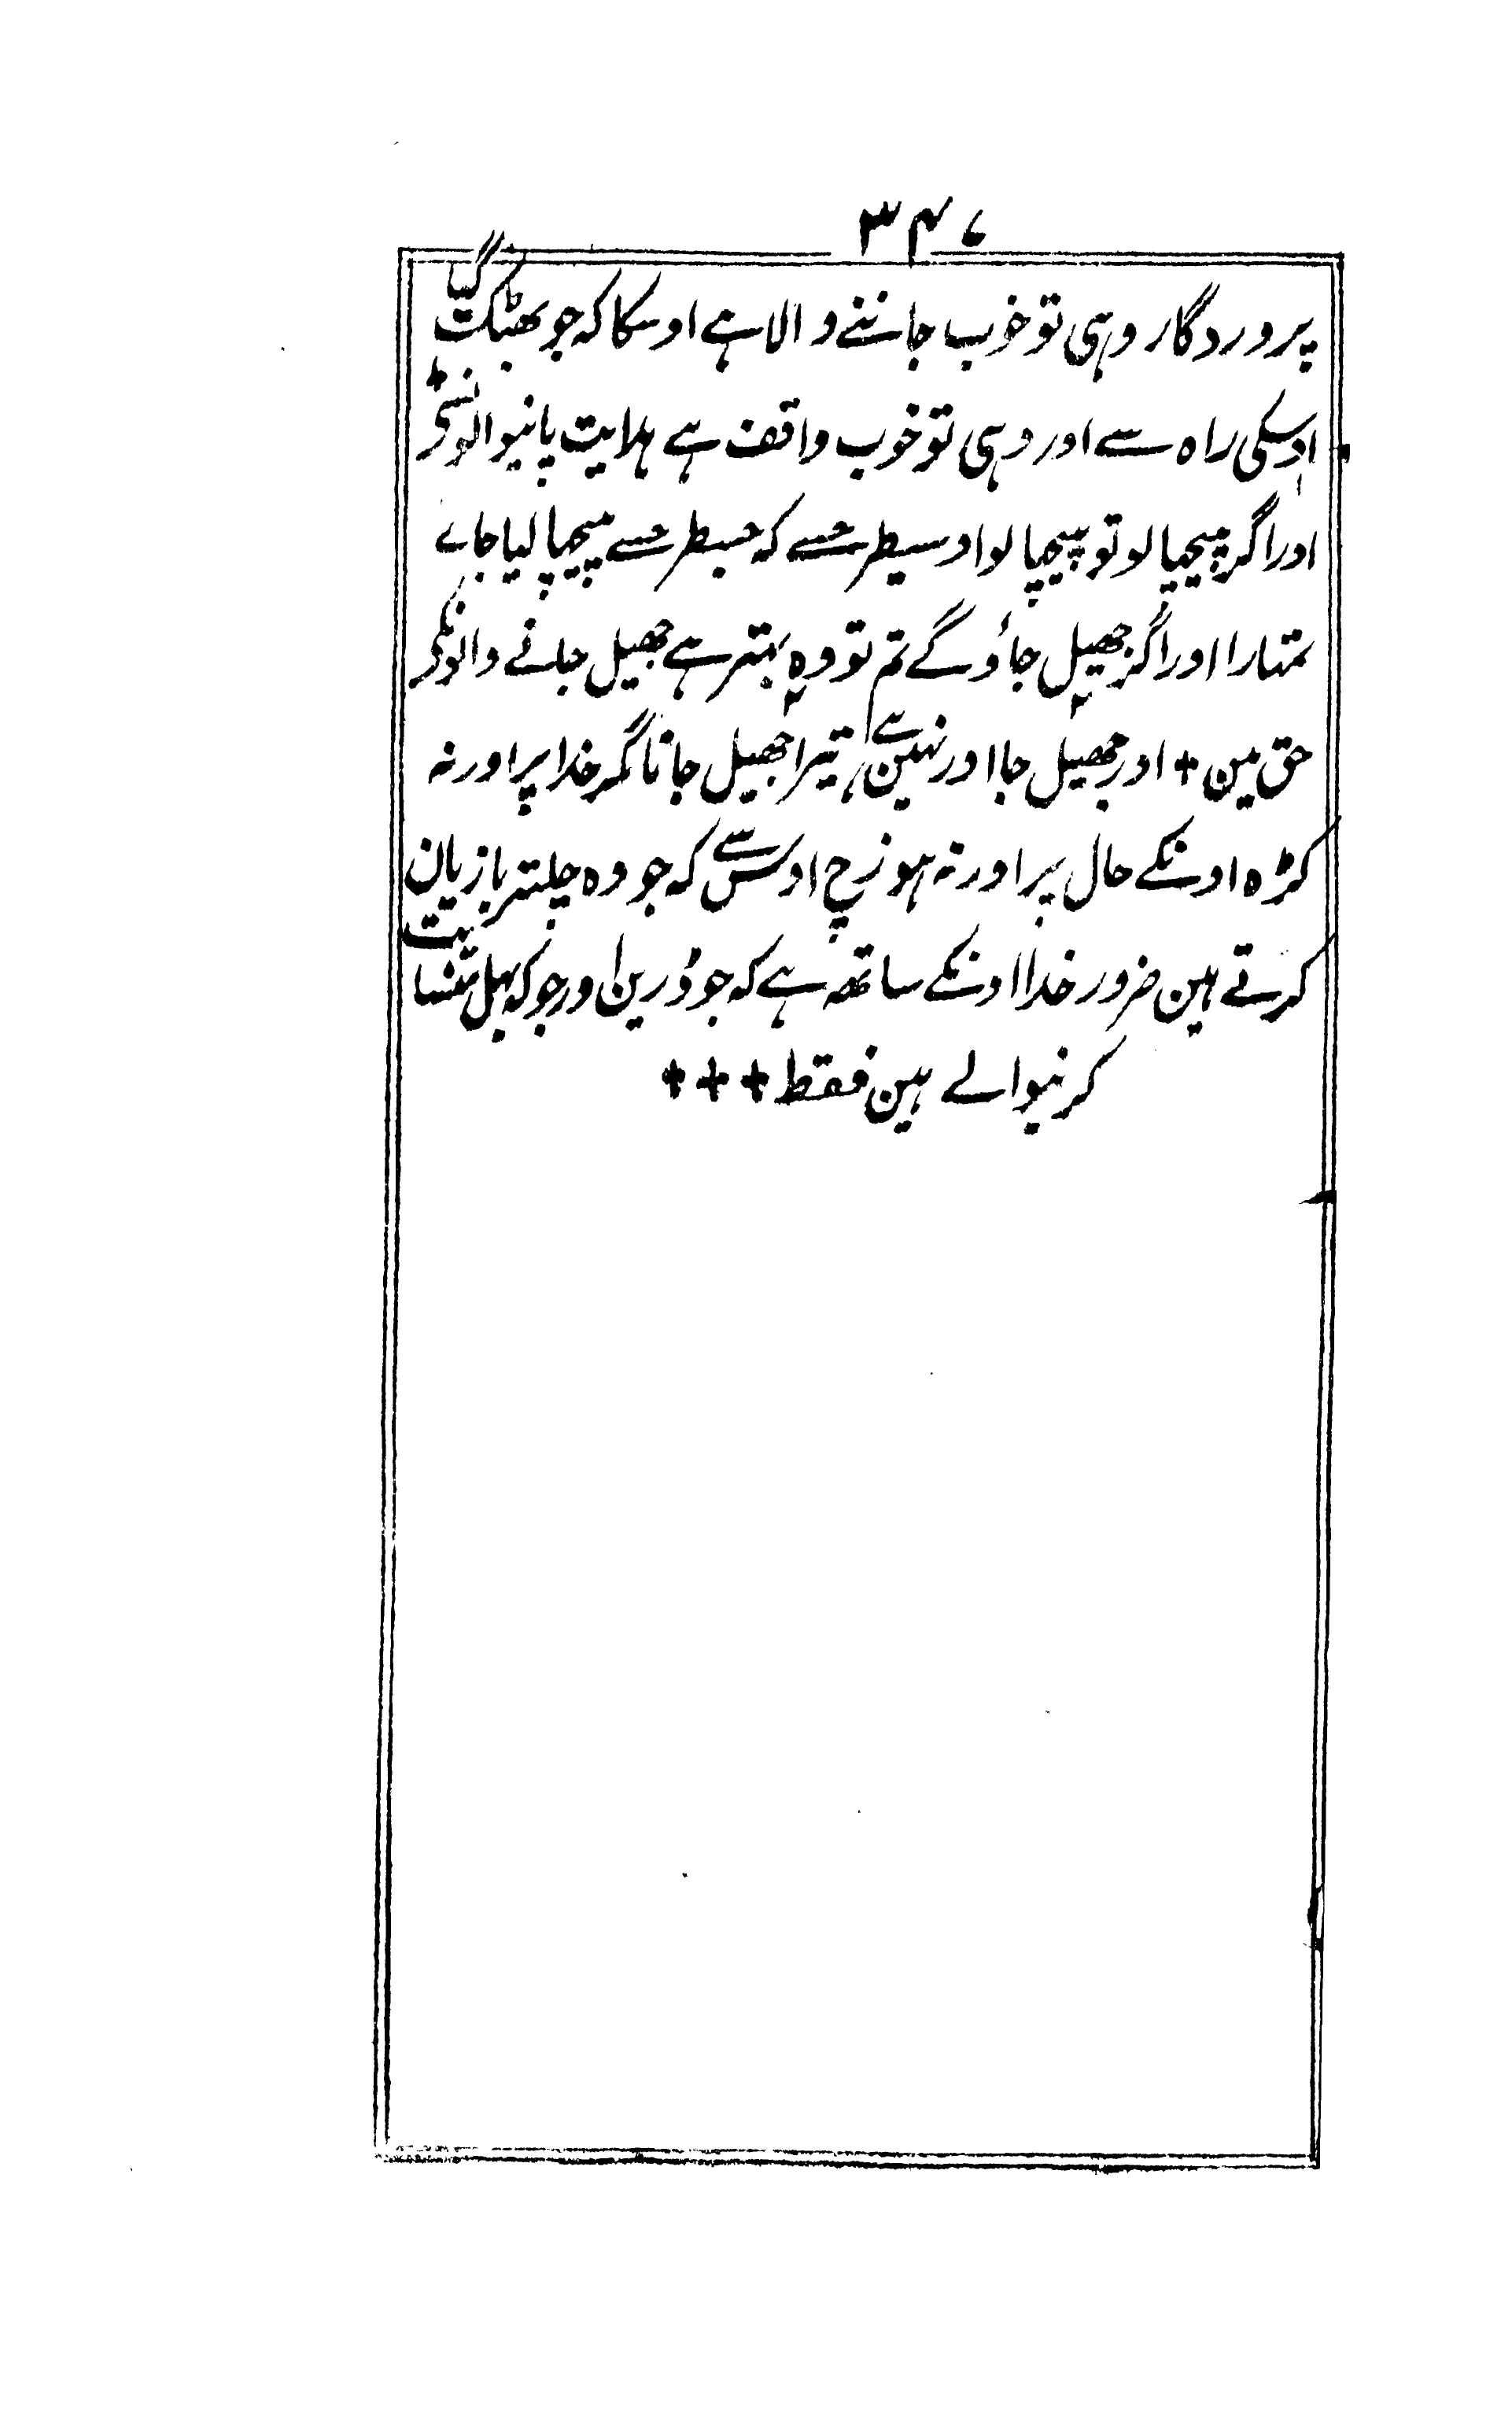 ۳۴۷
پروردگار وہی تو خوب جاننے والا ہے اوسکا کہ جو بھٹک گیا
اوسکی راہ سے اور وہی تو خوب واقف ہے ہدایت پانیوالونسے
اور اگر پیچھا لو تو پیچھا لو اوسیطرحسے کہ جسطرحسے پیچھا لیا جاے
تمہارا اور اگر جھیل جاؤگے تم تو وہ بہتر ہے جھیل جانے والونکے
حق مین + اور جھیل جا اور نہین ہے تیرا جھیل جانا مگر خدا پر اور نہ
کڑہ اونکے حال پر اور نہ ہو زچ اوس سے کہ جو وہ چلتر بازیان
کرتے ہین ضرور خدا اونکے ساتھ ہے کہ جو ڈرین اور جو کہ بہل منسایت
کرنیوالے ہین فقط + + +